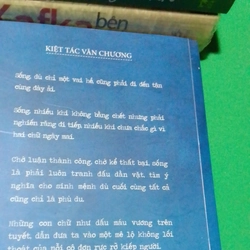 Kafka bên
KIỆT TÁC VĂN CHƯƠNG
Sống, dù chỉ một vai hề cũng phải đi đến tận
cùng đáy ải.
Sống, nhiều khi không bằng chết nhưng phải
nghiến răng đi tiếp nhiều khi chưa chắc gì vì
hai chữ ngày mai.
Chớ luận thành công, chớ kể thất bại, sống
là phải luôn tranh đấu dằn vặt, tìm ý
nghĩa cho sinh mệnh dù cuối cùng tất cả
cũng chỉ là phù du.
Những con chữ như dấu máu vương trên
tuyết, dẫn đưa ta vào một mê lộ không lối
thoát của nỗi cô đơn rực rỡ kiếp người.